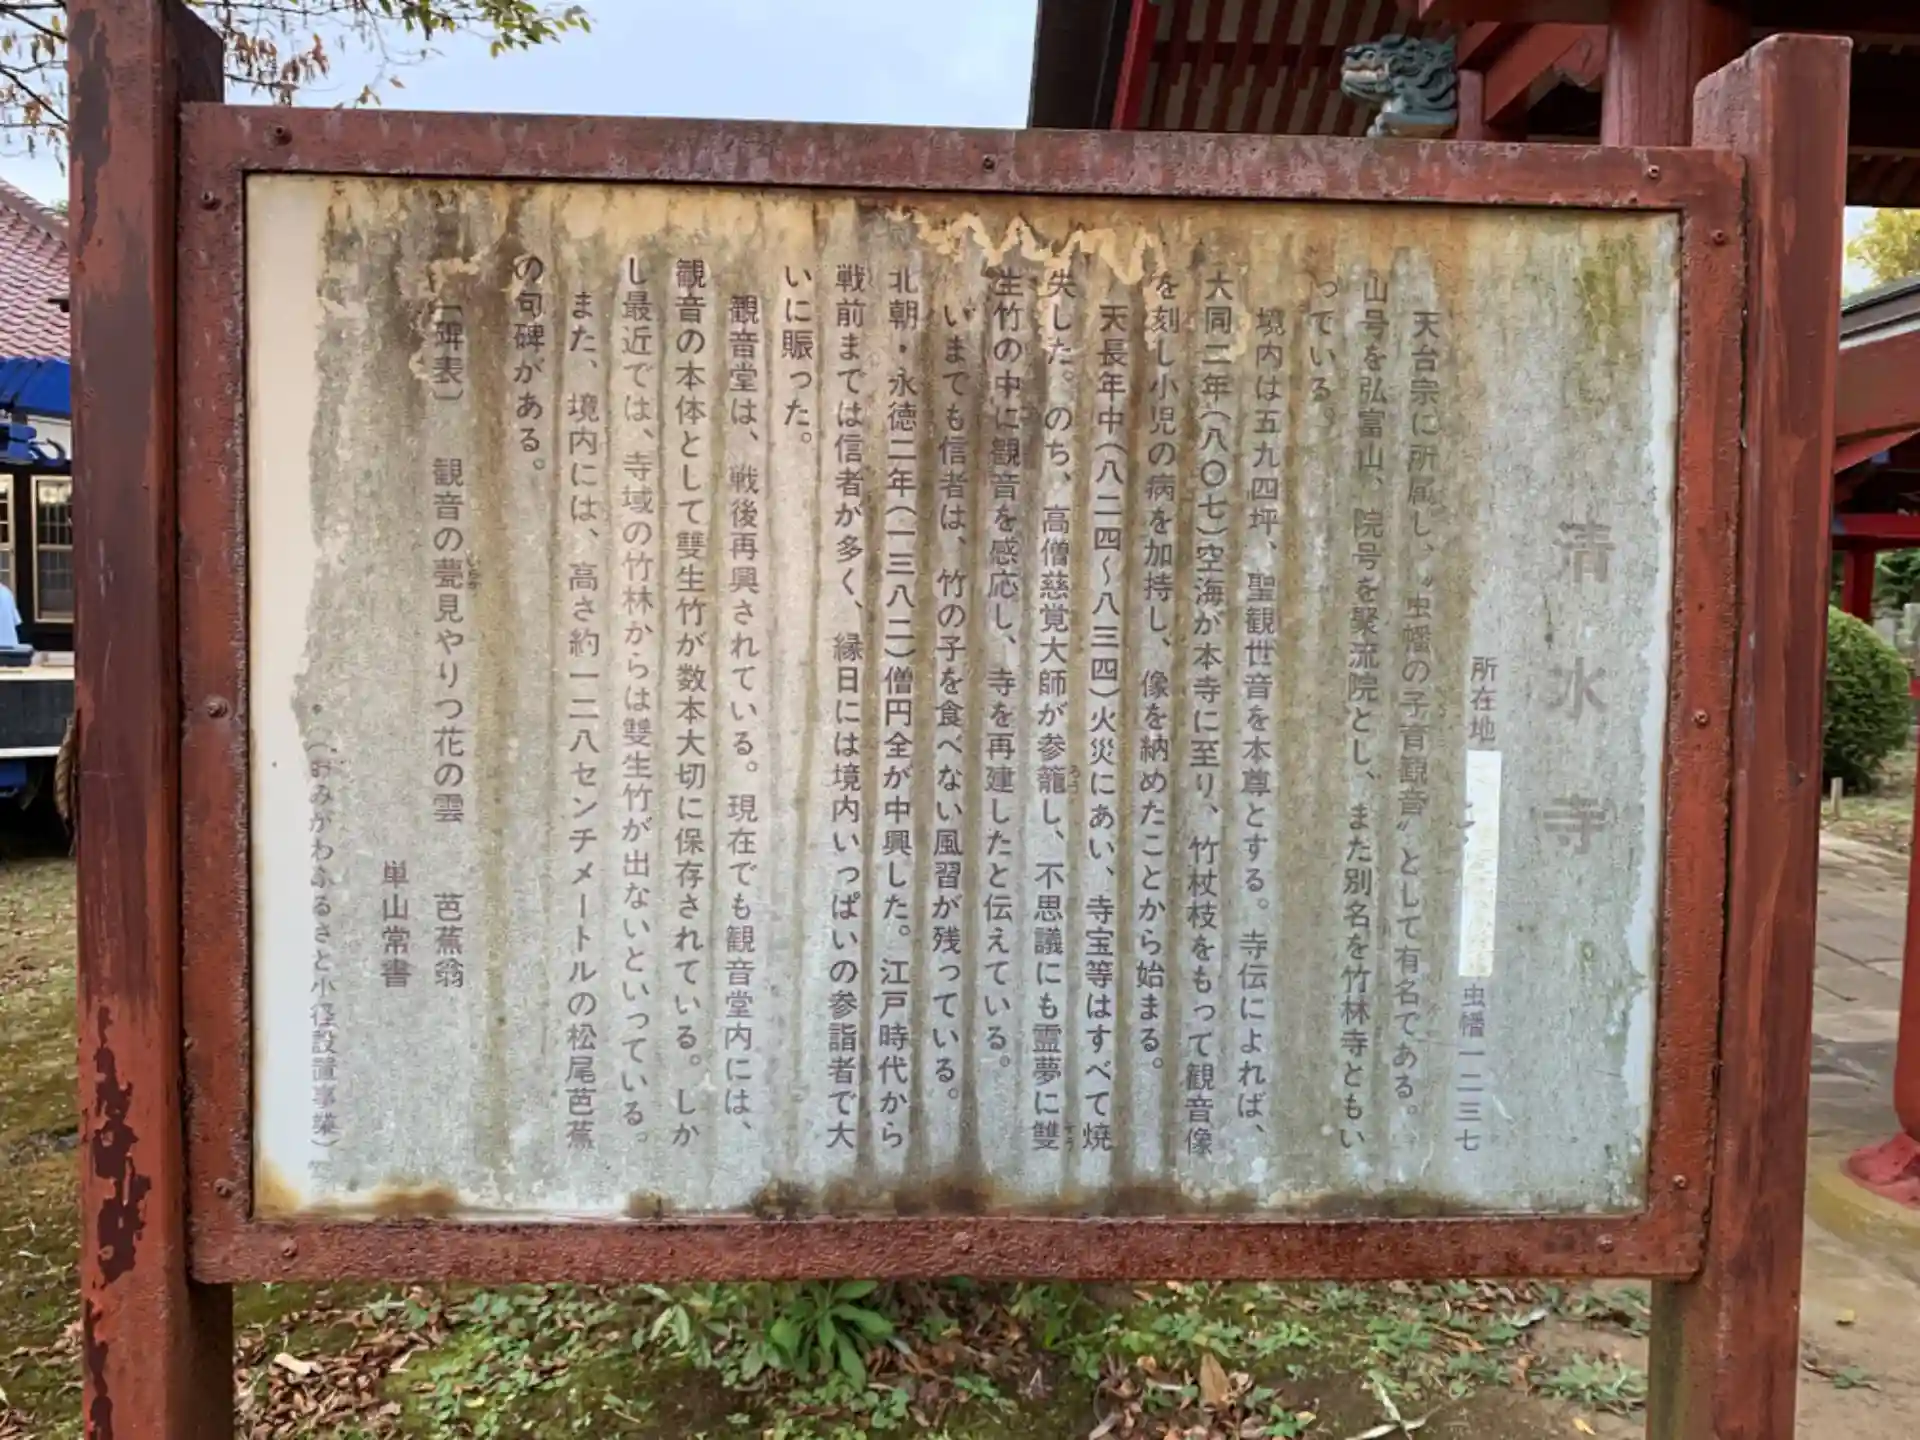 清水寺
所在地 虫幡一二三七
天台宗に所属し、〝虫幡の子育観音〟として有名である。
山号を弘富山、院号を聚流院とし、また別名を竹林寺ともい
っている。
境内は五九四坪、聖観世音を本尊とする。寺伝によれば、
大同二年(八〇七)空海が本寺に至り、竹杖枝をもって観音像
を刻し小児の病を加持し、像を納めたことから始まる。
天長年中(八二四〜八三四)火災にあい、寺宝等はすべて焼
失した。のち、高僧慈覚大師が参籠し、不思議にも霊夢に雙
生竹の中に観音を感応し、寺を再建したと伝えている。
いまでも信者は、竹の子を食べない風習が残っている。
北朝・永徳二年(一三八二)僧円全が中興した。江戸時代から
戦前までは信者が多く、縁日には境内いっぱいの参詣者で大
いに賑った。
観音堂は、戦後再興されている。現在でも観音堂内には、
観音の本体として雙生竹が数本大切に保存されている。しか
し最近では、寺域の竹林からは雙生竹が出ないといっている。
また、境内には、高さ約一二八センチメートルの松尾芭蕉
の句碑がある。
〔碑表〕 観音の甍見やりつ花の雲 芭蕉翁
単山常書
(おみがわふるさと小径設置事業)